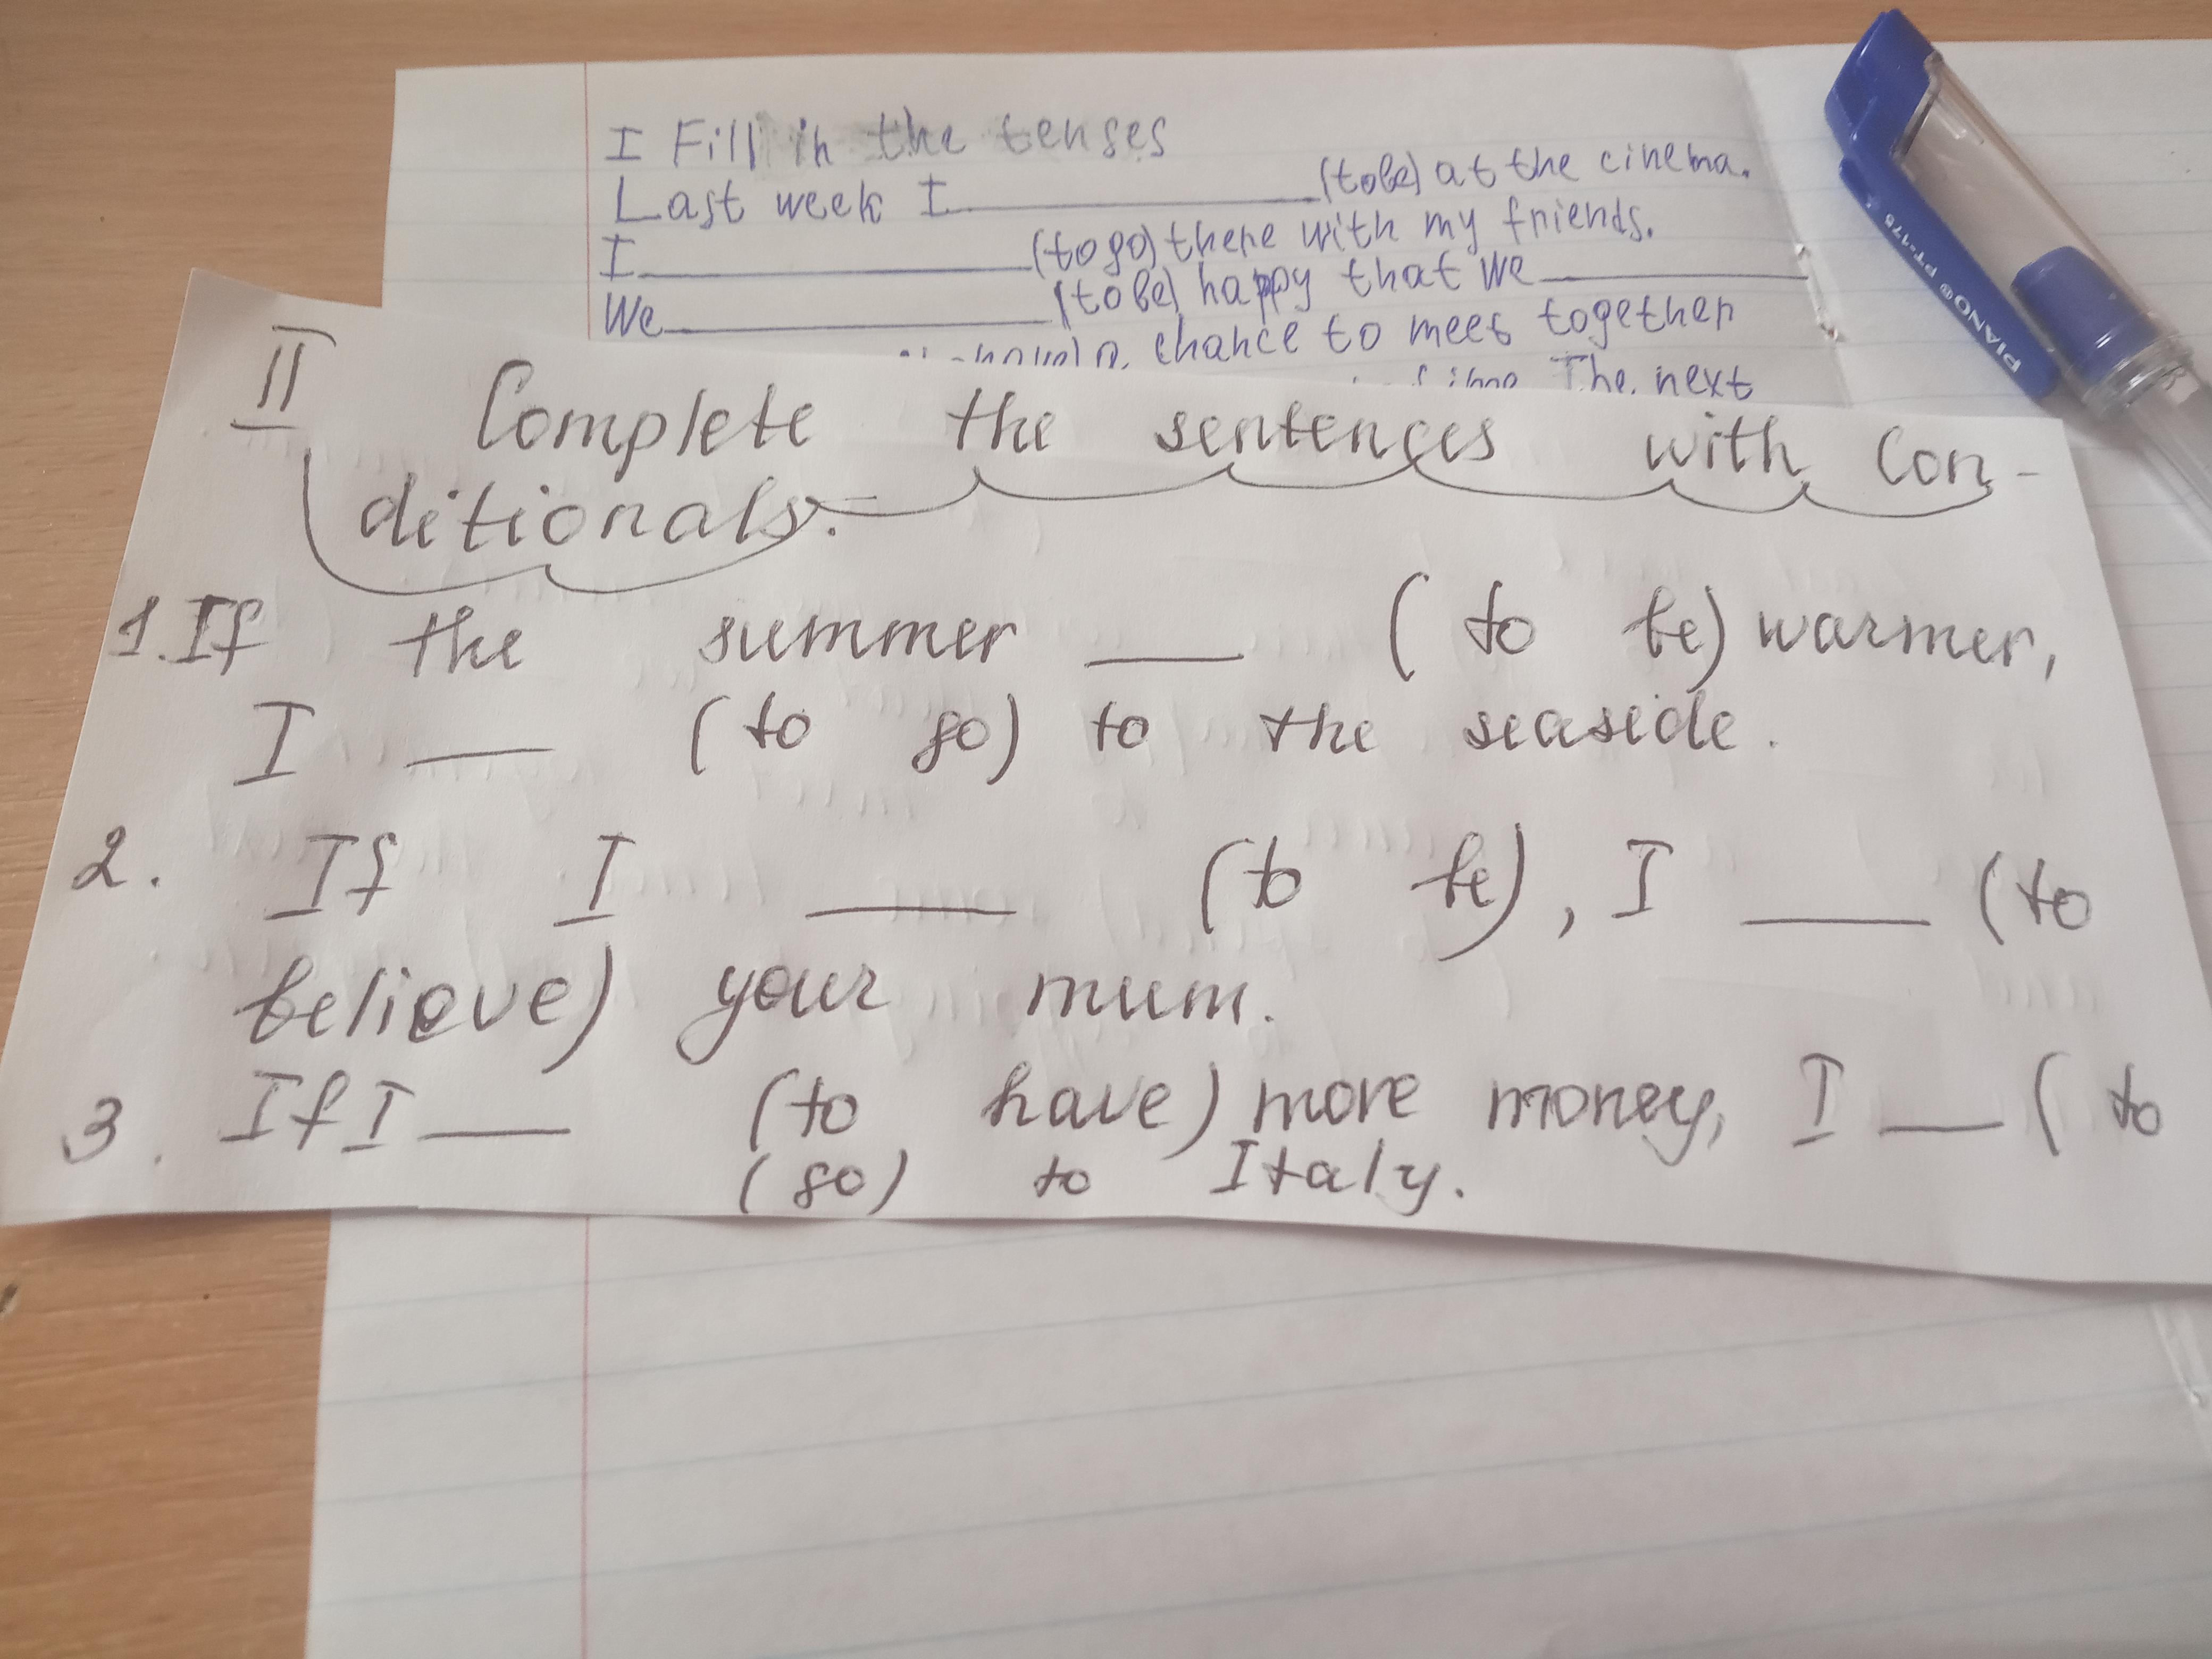 I Fill in the tenses
Last week I ______ (to be) at the cinema.
I ______ (to go) there with my friends.
We ______ (to be) happy that we ______
chance to meet together
The next
II Complete the sentences with Con-
ditionals.
1. If the summer ___ (to be) warmer,
I ___ (to go) to the seaside.
2. If I ___ (to be), I ___ (to
believe) your mum.
3. If I ___ (to have) more money, I ___ ( to
(go) to Italy.
PIANO® PT-175